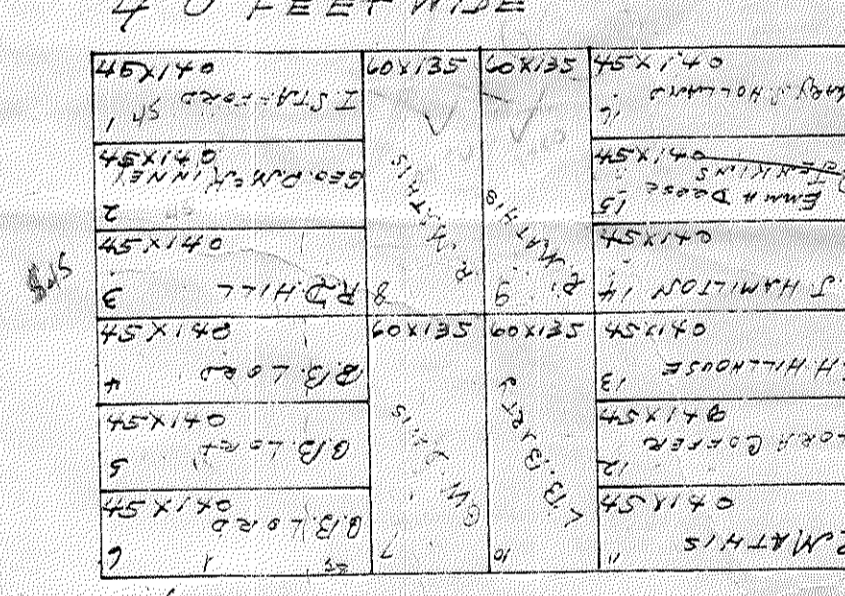 40 FEET WIDE
45x140
I STAFFORD
1
45x140
GEO. P. McKINNEY
2
45x140
R.D. HILL
3
45x140
B.B. LORD
4
45x140
B.B. LORD
5
45x140
B.B. LORD
6
60x135
R. MATHIS
8
60x135
R. MATHIS
9
60x135
G.W.
7
60x135
10
45x140
HOLLAND
16
45x140
JENKINS
EMMA DEESE
15
45x140
J. HAMILTON 14
45x140
H. HILLHOUSE
13
45x140
COFFER
12
45x140
R. MATHIS
11